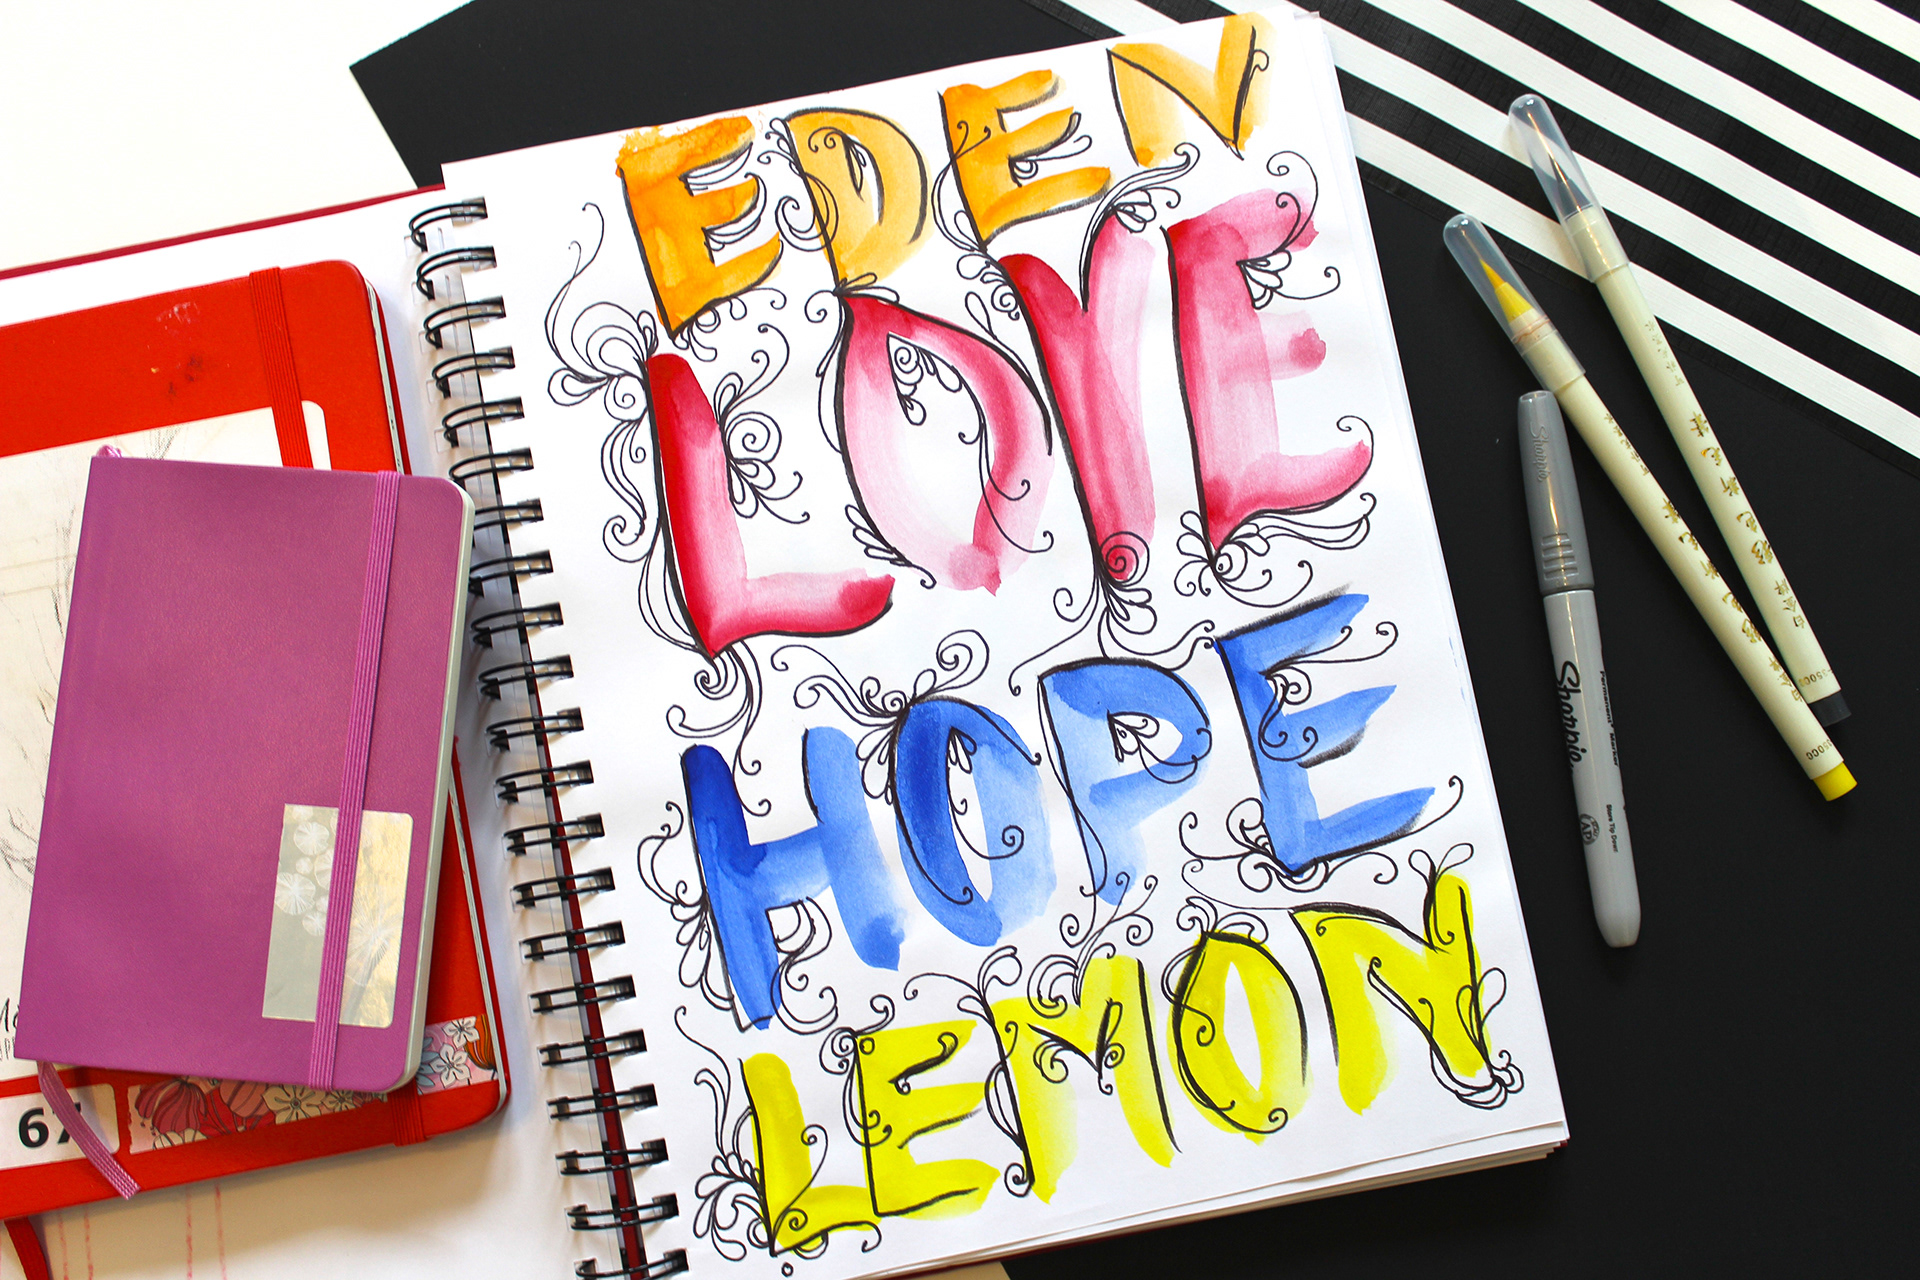 EDEN
LOVE
HOPE
LEMON
Sharpie
Sharpie
Permanent Marker
67